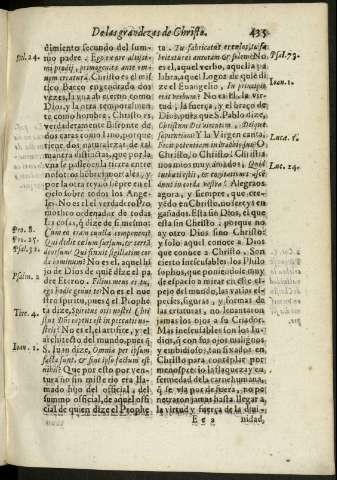 De las grandezas de Christo. 435
dimiento fecundo del sum-
mo padre, Ego ex ore altissi-
mi prodij, primogenita ante om-
nem creaturã. Christo es el mis
tico Bacco engendrado dos
vezes, la vna ab eterno como
Dios, y la otra temporalmen
te como hombre, Christo es
verdaderamente Bifronte de
dos caras como Iano, porque
tiene dos naturalezas de tal
manera distintas, que por la
vna se parece a la tierra entre
nosotros hõbres mortales, y
por la otra reyna sobre el
cielo sobre todos los Ange-
les. No es el verdadero Pro-
motheo ordenador de todas
las cosas, q̃ dize de si mesmo:
Cum eo eram cuncta componens?
Qui dedit celum sursum, & terrã
deorsum? Qui finxit sigillatim cor
da eorum? No es el, aquel hi-
jo de Dios de quiẽ dize el pa
dre Eterno, Filius meus es tu,
ego hodie genui te? No es el nue
stro spiritu, pues q̃ el Prophe
ta dize, Spiritus oris nostri Chri
stus
No es el, el artifice, y el
architecto del mundo, pues q̃
S. Iuan dize, Omnia per ipsum
facta sunt, & sine ipso factum est
nihil? Que por esto por ven-
tura no sin misterio era lla-
mado hijo del official, del
summo official, de aquel offi
cial de quien dize el Prophe
Psal. 24.
Pro. 8.
Pro. 25.
Psal. 32.
Psalm. 2
Tre. 4.
Ioan. 1.
ta, Tu fabricatus es
No
es el, aquel verbo, aquella pa
labra, aquel Logos de quiẽ di
ze el Euangelio, In principio
erat verbum? No es el la vir-
tud, la fuerça, y el braço de
Dios, pues que S. Pablo dize,
Christum Dei virtutem, Deique
sapientiam? Y la Virgen canta,
Fecit potentiam in brachio suo? O
Christo, o Christo! Christia
nos mios muy amados, Quid
turbati estis, & cogitationes ascẽ
dunt in corda vestra? Alegraos
aora, y siempre, que cre-
yẽdo en Christo, no soys en
gañados. Esta sin Dios, el que
esta sin Christo, porque no
ay otro Dios sino Christo:
y solo aquel conoce a Dios
que conoce a Christo. Son
cierto inescusables los Phi-
losophos, que poniendo muy
de espacio a mirar en este es
pejo del mundo, las varias es
pecies, figuras, y formas de
las criaturas, no leuantaron
jamas los ojos a su Criador.
Mas inescusables son los Iu-
dios, que aquellos malignos
y embidiosos, tan fixados en
Christo para contéplar por
menosprecio las flaquezas y en
fermedad de la carne humana,
q̃ se via por de fuera, no po-
netraron jamas hasta llegar a
la virtud y fuerça de la diui-
Psal. 73.
Ioan. 1.
Luca. 1.
Luc. 24.
Eee nidad,